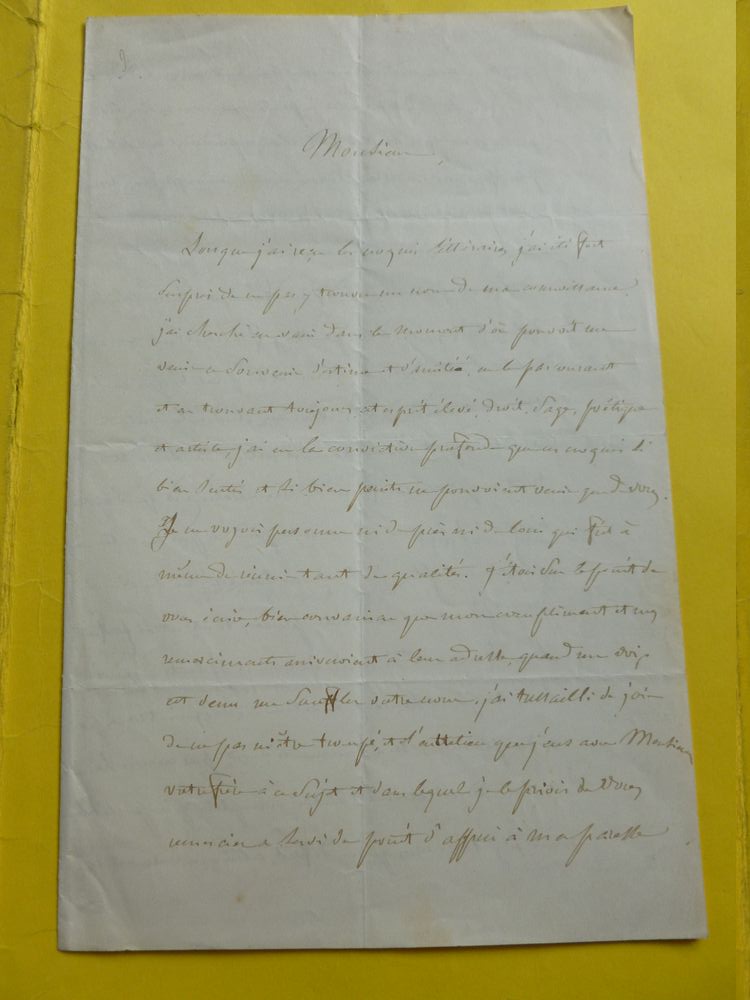 Monsieur,
Lorsque j'ai reçu les croquis littéraires j'ai été fort
surpris de ne pas y trouver un nom de ma connaissance
j'ai cherché en vain dans le moment d'où pouvoit me
venir ce souvenir d'estime et d'amitié, en le parcourant
et en trouvant toujours cet esprit élevé, droit, sage, poétique
et artiste, j'ai eu la conviction profonde que ces croquis si
bien sentis et si bien peints ne pouvoient venir que de vous.
Je ne voyois personne ni de près ni de loin qui fut à
même de réunir tant de qualités. J'étois sur le point de
vous écrire, bien convaincue que mon compliment et mes
remerciments arriveroient à leur adresse, quand une voix
est venu me souffler votre nom, j'ai tressailli de joie
de ne pas m'être trompé, et l'entretien que j'eus avec Monsieur
votre frère à ce sujet et dans lequel je le priois de vous
remercier a servi de point d'appui à ma paresse